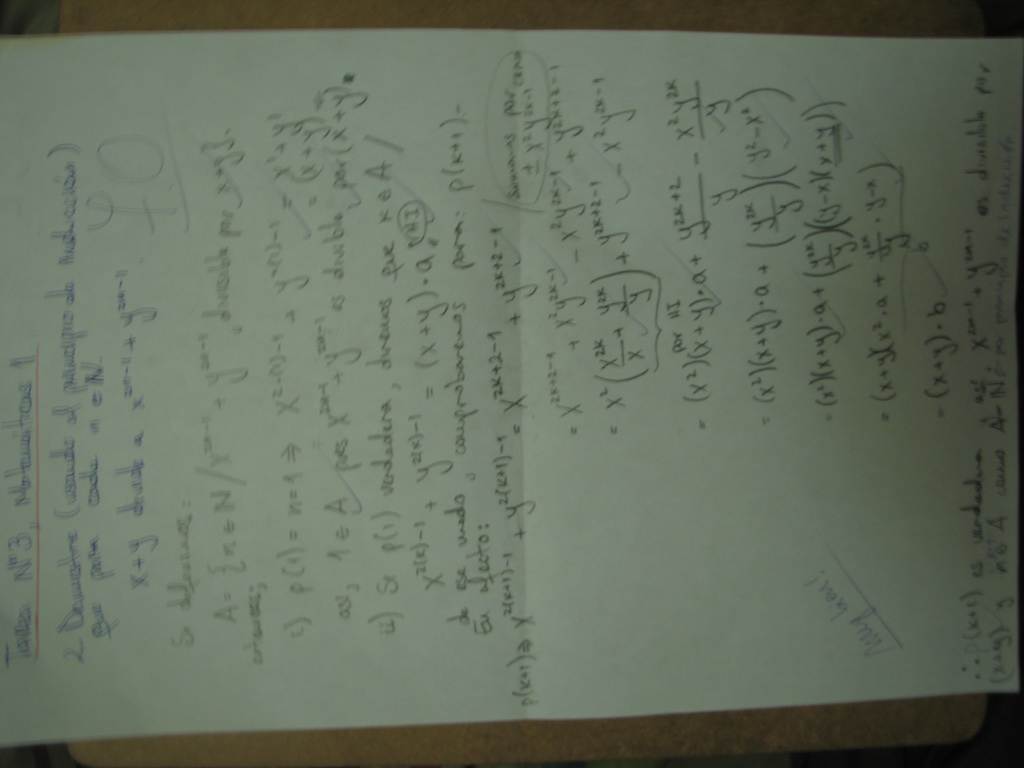 Tarea N°3, Matemáticas 1
2- Demuestre (usando el principio de inducción)
que para cada n ∈ N.
x+y divide a x²ⁿ⁻¹ + y²ⁿ⁻¹
7.0
Si definimos:
A = { n ∈ N / x²ⁿ⁻¹ + y²ⁿ⁻¹, divisible por x+y}.
entonces;
i) p(1) = n=1 ⇒ x²⁽¹⁾⁻¹ + y²⁽¹⁾⁻¹ = x¹+y¹
= (x+y)
así, 1 ∈ A pues x²ⁿ⁻¹ + y²ⁿ⁻¹ es divisible por (x+y)
ii) Si p(1) verdadera, diremos que k ∈ A /
x²⁽ᵏ⁾⁻¹ + y²⁽ᵏ⁾⁻¹ = (x+y)·a, (HI)
de ese modo, comprobaremos para: p(k+1).-
En efecto:
p(k+1) ⇒ x²⁽ᵏ⁺¹⁾⁻¹ + y²⁽ᵏ⁺¹⁾⁻¹ = x²ᵏ⁺²⁻¹ + y²ᵏ⁺²⁻¹ / sumamos por
± x²y²ᵏ⁻¹
= x²ᵏ⁺²⁻¹ + x²y²ᵏ⁻¹ - x²y²ᵏ⁻¹ + y²ᵏ⁺²⁻¹
= x²(x²ᵏ/x + y²ᵏ/y) + y²ᵏ⁺²⁻¹ - x²y²ᵏ⁻¹
por HI
= (x²)(x+y)·a + y²ᵏ⁺²/y - x²y²ᵏ/y
= (x²)(x+y)·a + (y²ᵏ/y)(y²-x²)
= (x²)(x+y)·a + (y²ᵏ/y)(y-x)(x+y)
= (x+y)(x²·a + y²ᵏ/y · y-x)
b
= (x+y)·b
Muy bien!
∴ p(k+1) es verdadera y así x²ⁿ⁻¹ + y²ⁿ⁻¹ es divisible por
(x+y) y A = N por principio de inducción.